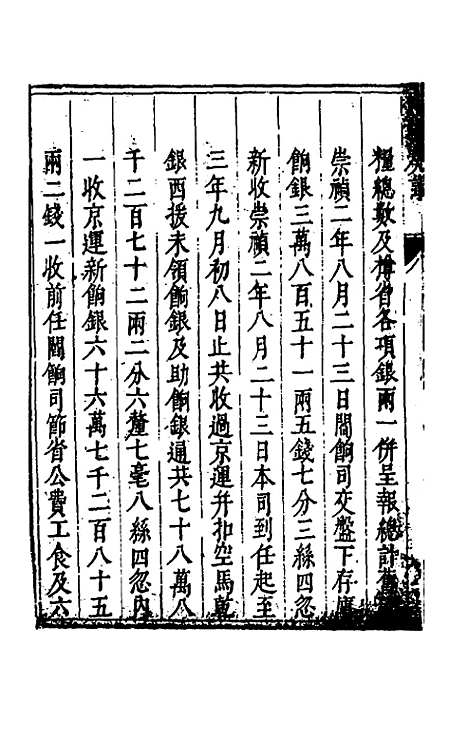 糧總數及撙省各項銀兩一併呈報總計舊
崇禎二年八月二十三日關餉司交盤下存庫
餉銀三萬八百五十一兩五錢七分三絲四忽
新收崇禎二年八月二十三日本司到任起至
三年九月初八日止共收過京運并扣空馬乾
銀西援未領餉銀及助餉銀通共七十八萬八
千二百七十二兩二分六釐七毫八絲四忽內
一收京運新餉銀六十六萬七千二百八十五
兩二錢一收前任關餉司節省公費工食及六